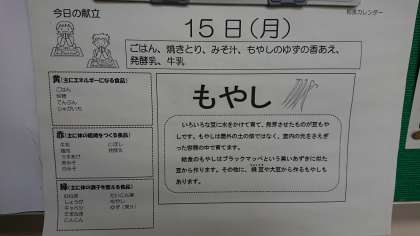 今日の献立
15日(月)
ごはん、焼きとり、みそ汁、もやしのゆずの香あえ、
発酵乳、牛乳
黄(主にエネルギーになる食品)
ごはん
砂糖
でんぷん
じゃがいも
赤(主に体の組織をつくる食品)
牛乳
鶏肉
発酵乳
緑(主に体の調子を整える食品)
しょうが
もやし
キャベツ
たまねぎ
にんじん
もやし
いろいろな豆に水をかけて育て、発芽させたものが豆もや
しです。もやしは屋外の土の畑ではなく、室内の光をさえぎ
った容器の中で育てます。
給食のもやしはブラックマッペという黒いあずきに似た
豆から作ります。その他に、緑豆や大豆から作るもやしも
あります。